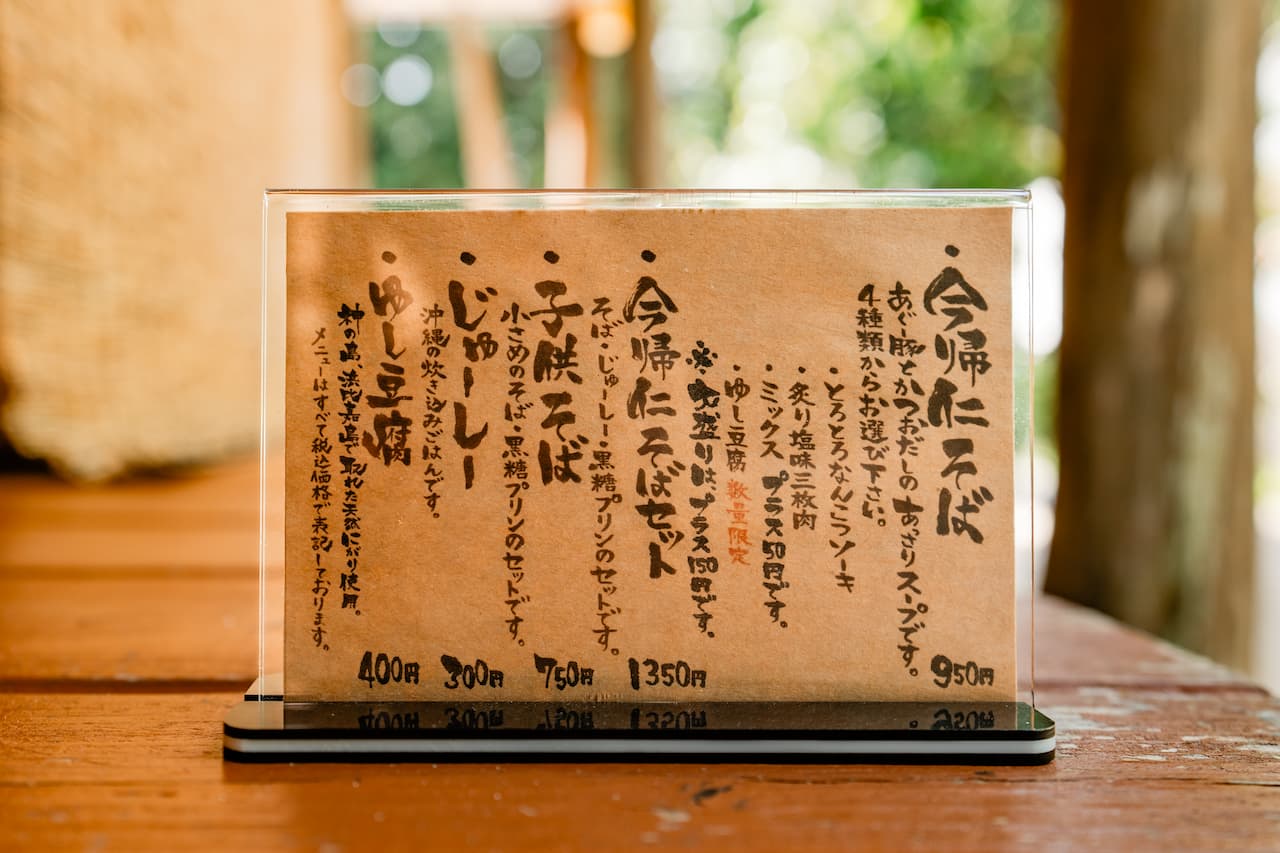 ・今帰仁そば 950円
あぐー豚とかつおだしのあっさりスープです。
4種類からお選び下さい。
・とろとろなんこつソーキ
・炙り塩味三枚肉
・ミックス プラス50円です。
・ゆし豆腐 数量限定
※大盛りはプラス150円です。
・今帰仁そばセット 1350円
そば・じゅーしー・黒糖プリンのセットです。
・子供そば 750円
小さめのそば・黒糖プリンのセットです。
・じゅーしー 300円
沖縄の炊き込みごはんです。
・ゆし豆腐 400円
神の島、浜比嘉島で取れた天然にがり使用。
メニューはすべて税込価格で表記しております。